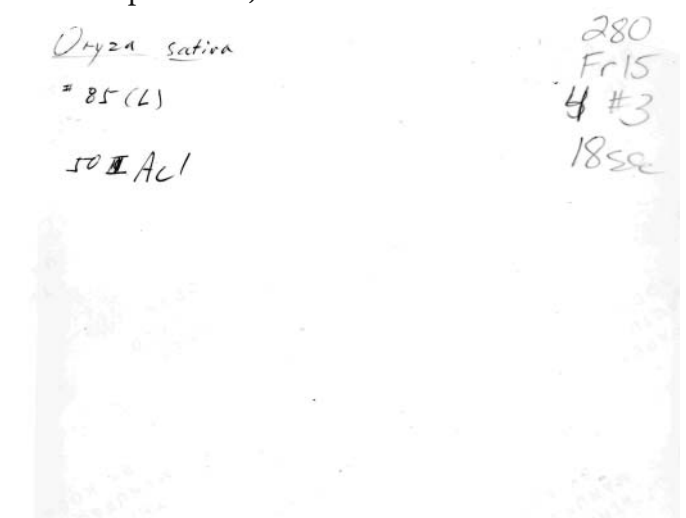 Oryza sativa
# 85 (L)
50 Acl
280
Fr 15
4 #3
18sec